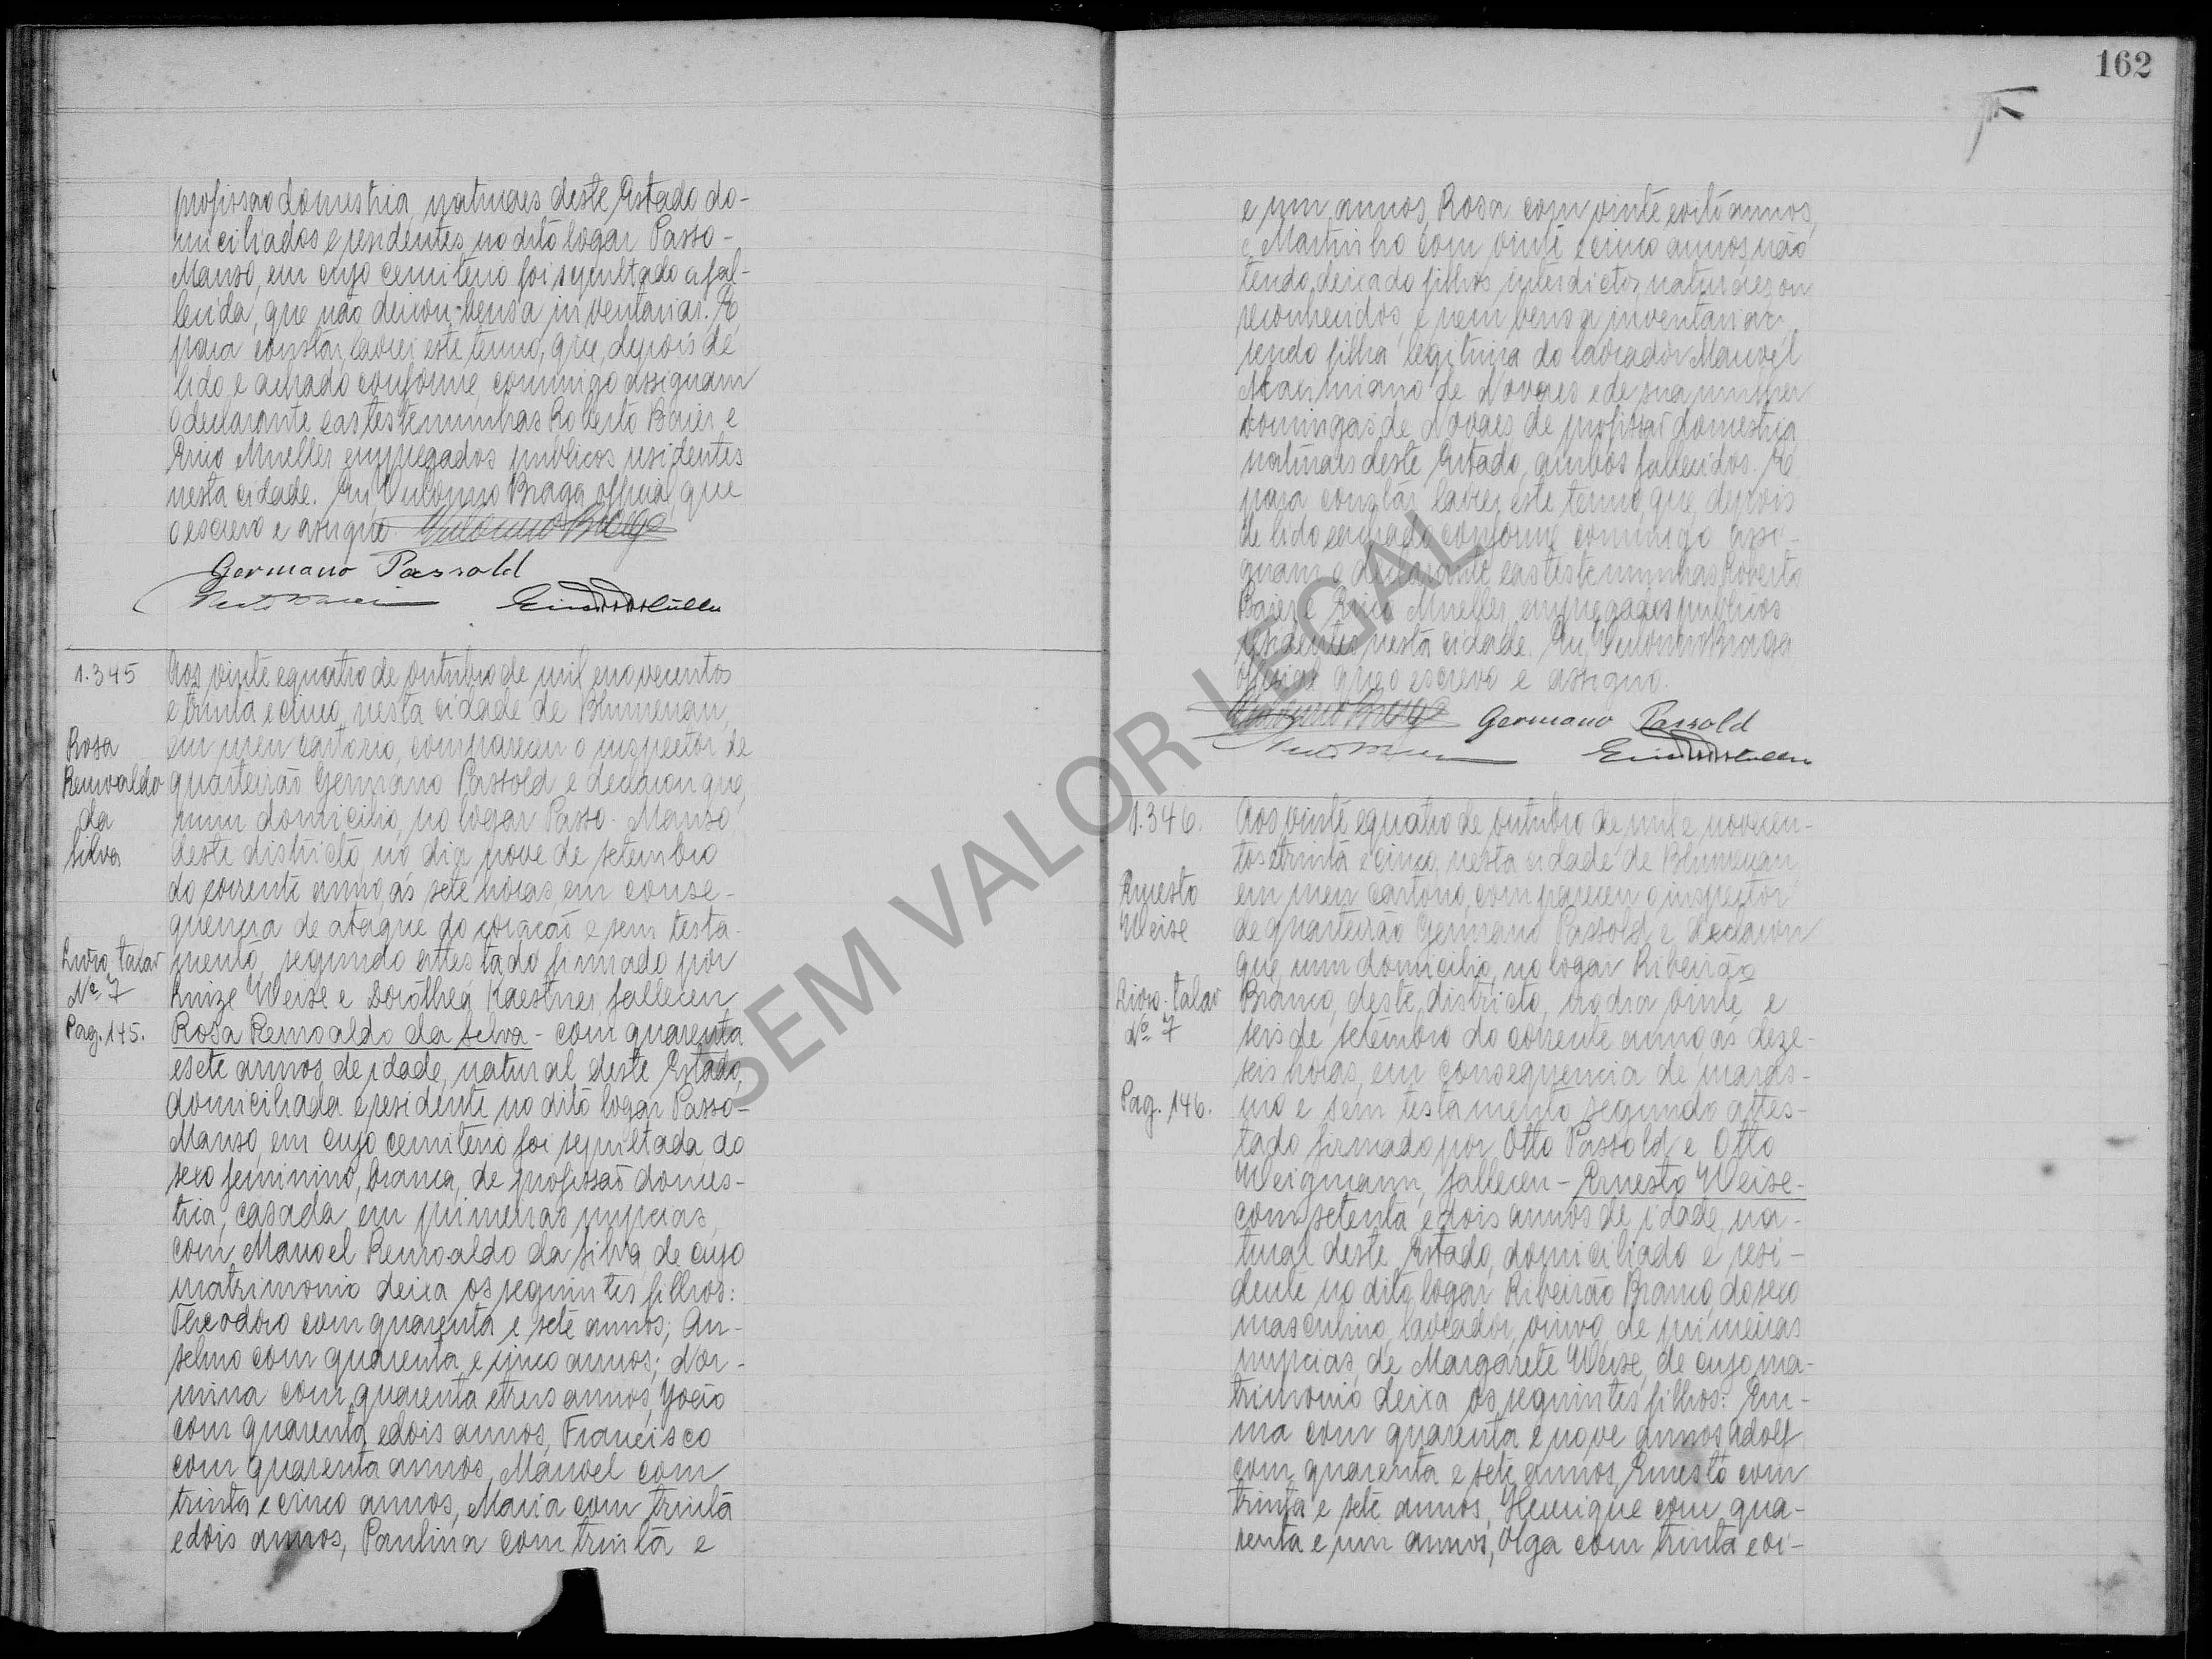 profissão domestica, naturaes deste Estado do-
miciliados e residentes no dito logar Passo-
Manso, em cujo cemiterio foi sepultado a fal-
lecida, que não deixou bens a inventariar. E
para constar lavrei este termo, que, depois de
lido e achado conforme, commigo assignam
o declarante e as testemunhas Roberto Baier e
Erico Mueller empregados publicos residentes
nesta cidade. Eu, Braga official, que
o escrevo e assigno.
Germano Passold
1.345
Rosa
Remoaldo
da
Silva
Livro talar
Nº 7
Pag. 145.
Aos vinte e quatro de outubro de mil e novecentos
e trinta e cinco, nesta cidade de Blumenau,
em meu cartorio, compareceu o inspector de
quarteirão Germano Passold e declarou que,
num domicilio, no logar Passo-Manso
deste districto no dia nove de setembro
do corrente anno, ás sete horas, em conse-
quencia de ataque do coração e sem testa-
mento, segundo attestado firmado por
Weise e Dorothea Kaestner, falleceu
Rosa Remoaldo da Silva - com quarenta
e sete annos de idade, natural deste Estado,
domiciliada e residente no dito logar Passo-
Manso, em cujo cemiterio foi sepultada, do
sexo feminino, branca, de profissão domes-
tica, casada em primeiras nupcias,
com Manoel Remoaldo da Silva, de cujo
matrimonio deixa os seguintes filhos:
Theodoro com quarenta e sete annos; An-
selmo com quarenta e cinco annos; Nor-
mina com quarenta e tres annos, João
com quarenta e dois annos, Francisco
com quarenta annos, Manoel com
trinta e cinco annos, Maria com trinta
e dois annos, Paulina com trinta e
162
e um annos, Rosa com vinte e oito annos,
e Martinho com vinte e cinco annos, não
tendo deixado filhos interdictos, naturaes ou
reconhecidos, e nem bens a inventariar,
sendo filha legitima do lavrador Manoel
Maximiano de Novaes e de sua mulher
Domingas de Novaes, de profissão domestica
naturaes deste Estado, ambos fallecidos. E
para constar lavrei este termo, que, depois
de lido e achado conforme commigo assi-
gnam o declarante e as testemunhas Roberto
Baier e Erico Mueller, empregados publicos
residentes nesta cidade. Eu, Braga
official que o escrevo e assigno.
Germano Passold
1.346.
Ernesto
Weise
Livro-talar
Nº 7
Pag. 146.
Aos vinte e quatro de outubro de mil e novecen-
tos e trinta e cinco, nesta cidade de Blumenau,
em meu cartorio, compareceu o inspector
de quarteirão Germano Passold e declarou
que, num domicilio, no logar Ribeirão
Branco, deste districto, no dia vinte e
seis de setembro do corrente anno, ás deze-
seis horas, em consequencia de maras-
mo e sem testamento segundo attes-
tado firmado por Otto Passold e Otto
Weigmann, falleceu - Ernesto Weise -
com setenta e dois annos de idade, na-
tural deste Estado, domiciliado e resi-
dente no dito logar Ribeirão Branco, do sexo
masculino, lavrador, viuvo de primeiras
nupcias, de Margarete Weise, de cujo ma-
trimonio deixa os seguintes filhos: Em-
ma com quarenta e nove annos, Adolf
com quarenta e sete annos, Ernesto com
trinta e sete annos, Henrique com qua-
renta e um annos, Olga com trinta e oi-
SEM VALOR LEGAL